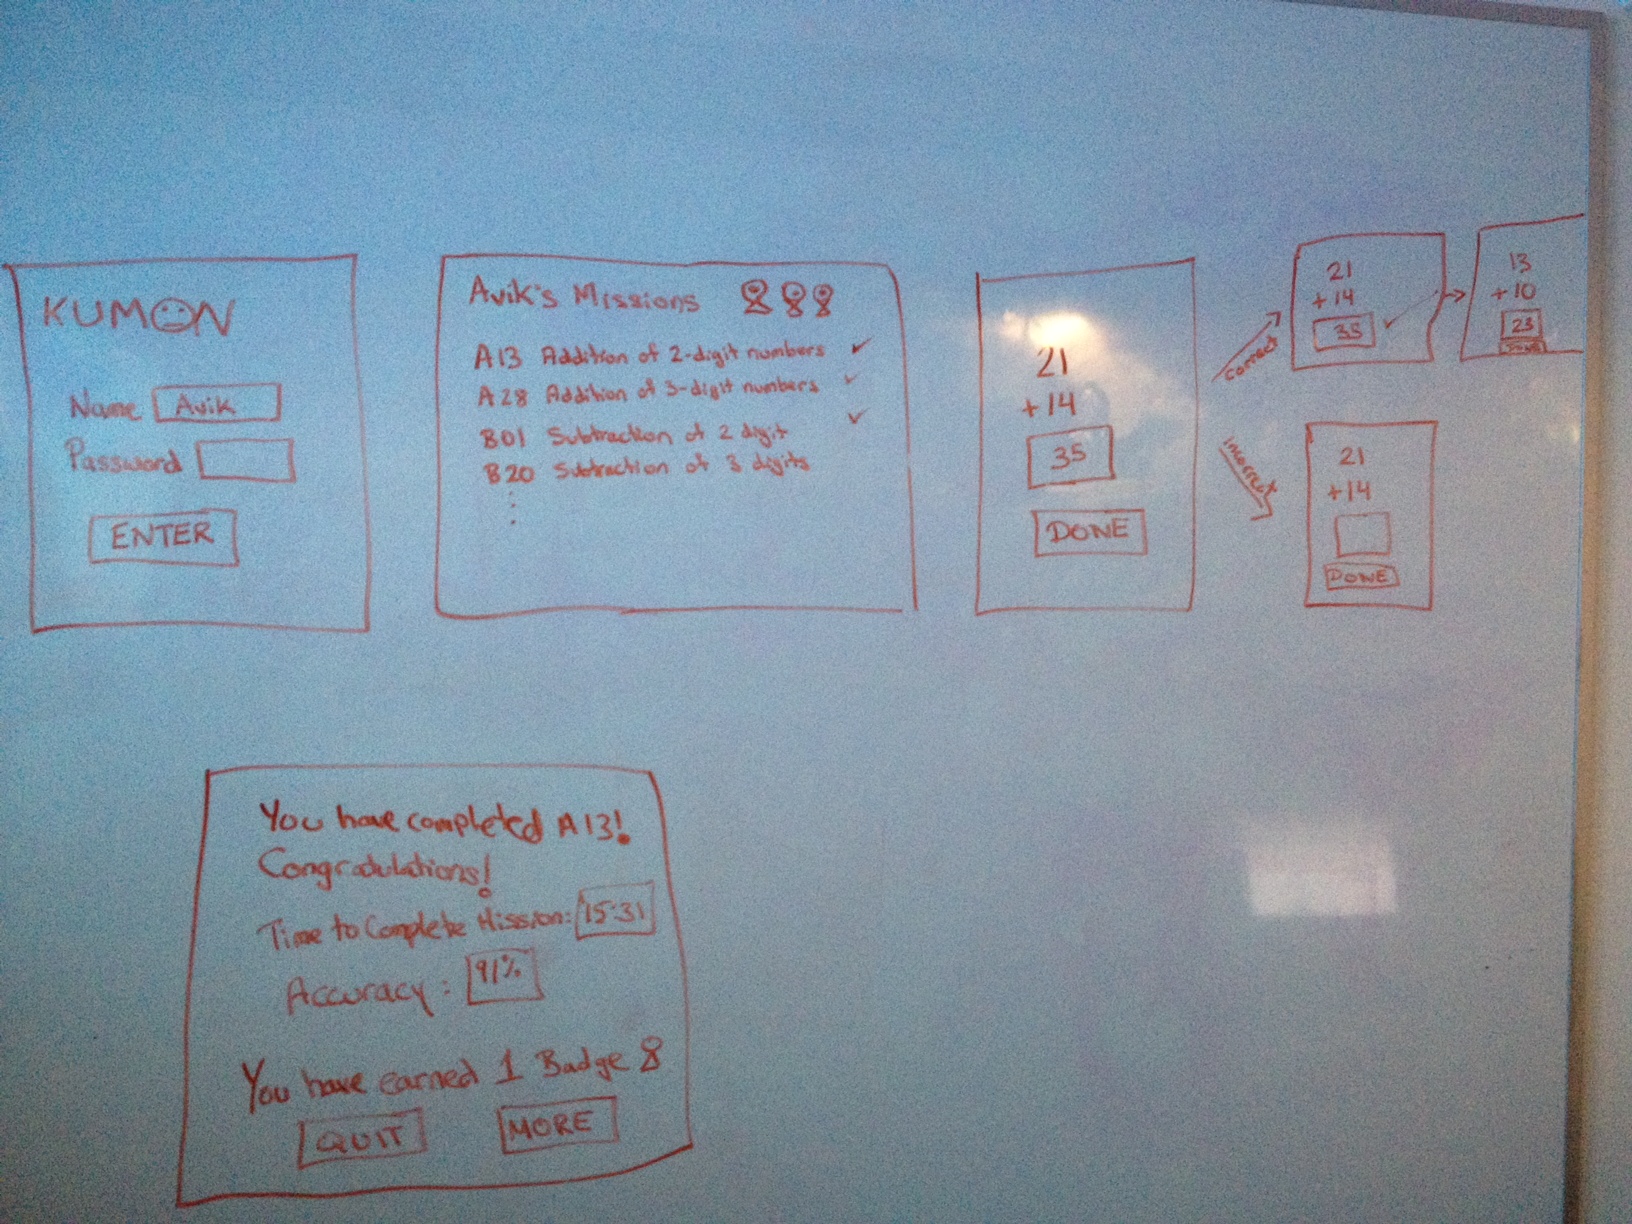 KUMON
Name Avik
Password
ENTER
Avik's Missions
A13 Addition of 2-digit numbers ✓
A28 Addition of 3-digit numbers ✓
B01 Subtraction of 2 digit ✓
B20 Subtraction of 3 digits
21
+14
35
DONE
correct
21
+14
35 ✓
13
+10
23
DONE
incorrect
21
+14
DONE
You have completed A13!
Congratulations!
Time to Complete Mission: 15:31
Accuracy: 91%
You have earned 1 Badge
QUIT MORE